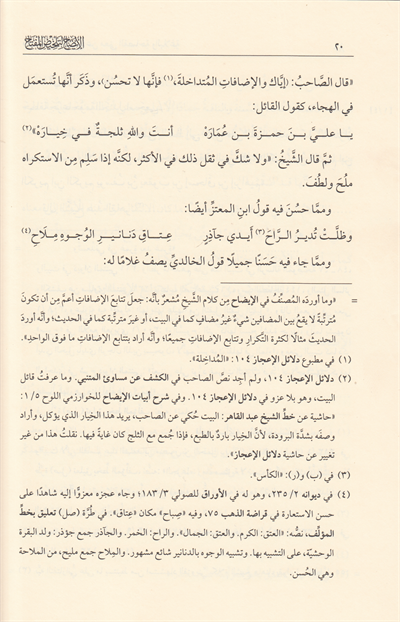 ٢٠
الإيضاح لتلخيص المفتاح
«قال الصَّاحبُ: (إيَّاك والإضافاتِ المُتداخلةَ،(١) فإنَّها لا تحسُن)»، وذكَر أنَّها تُستعمَل
في الهجاء، كقول القائل:
يا عليَّ بنَ حمزةَ بنِ عُمَارَهْ    أنتَ واللهِ ثلجةٌ في خِيارَهْ»(٢)
ثمَّ قال الشَّيخُ: «ولا شكَّ في ثقل ذلك في الأكثر، لكنَّه إذا سَلِم مِن الاستكراه
ملُحَ ولطُفَ.
وممَّا حسُنَ فيه قولُ ابنِ المعتزِّ أيضًا:
وظلَّتْ تُديرُ الرَّاحَ(٣) أيدي جآذِرٍ    عِتاقِ دَنانيرِ الوُجوهِ مِلاحِ(٤)
وممَّا جاء فيه حَسَنًا جميلًا قولُ الخالديِّ يصفُ غلامًا له:
= «وما أوردَه المُصنِّفُ في الإيضاح مِن كلام الشَّيخِ مُشعرٌ بأنَّه: جعل تتابعَ الإضافاتِ أعمَّ مِن أن تكونَ
مترتِّبةً لا يقعُ بين المضافين شيءٌ غيرُ مضافٍ كما في البيت، أو غيرَ مترتِّبة كما في الحديث؛ وأنَّه أوردَ
الحديثَ مثالًا لكثرة التَّكرارِ وتتابعِ الإضافاتِ جميعًا؛ وأنَّه أراد بتتابع الإضافاتِ ما فوق الواحدِ».
(١) في مطبوع دلائل الإعجاز ١٠٤: «المُداخِلة».
(٢) دلائل الإعجاز ١٠٤، ولم أجِد نصَّ الصاحب في الكشف عن مساوئ المتنبي. وما عرفتُ قائل
البيت، وهو بلا عزو في دلائل الإعجاز ١٠٤. وفي شرح أبيات الإيضاح للخوارزمي اللوح ١/٥:
«حاشية عن خطِّ الشيخ عبد القاهر: البيت حُكي عن الصاحب، يريد هذا الخيار الذي يؤكل، وأراد
وصفَه بشدَّة البرودة، لأنَّ الخيار باردٌ بالطبع، فإذا جُمع مع الثلج كان غايةً فيها. نقلتُ هذا من غير
تغيير عن حاشية دلائل الإعجاز».
(٣) في (ب) و(ر): «الكأس».
(٤) في ديوانه ٢/ ٢٣٥، وهو له في الأوراق للصولي ٣/ ١٨٣؛ وجاء عجزه معزوًّا إليه شاهدًا على
حسن الاستعارة في قراضة الذهب ٧٥، وفيه «صِباح» مكان «عِتاق». في طُرَّة (صل) تعليق بخطِّ
المؤلِّف، نصُّه: «العتق: الكرم. والعتق: الجمال». والراح: الخمر. والجآذر جمع جؤذر: ولد البقرة
الوحشيّة، على التشبيه بها. وتشبيه الوجوه بالدنانير شائع مشهور. والمِلاح جمع مليح، من الملاحة
وهي الحُسن.